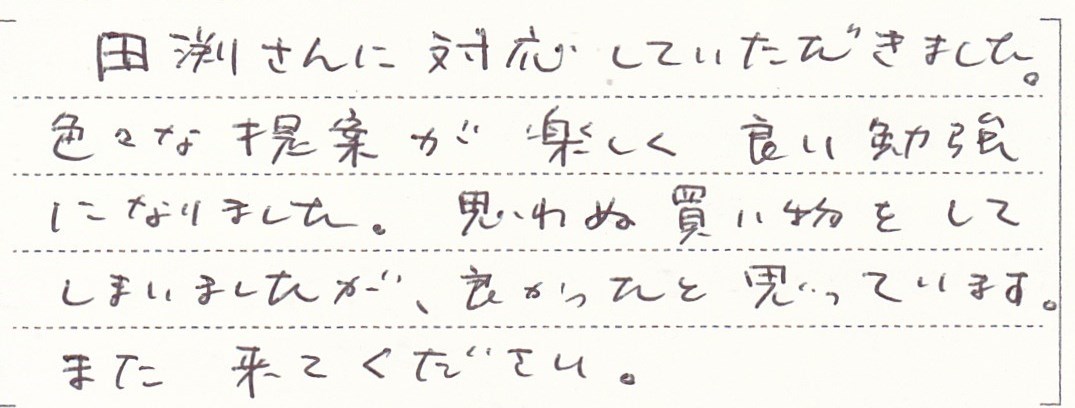 田渕さんに対応していただきました。
色々な提案が楽しく良い勉強
になりました。思わぬ買い物をして
しまいましたが、良かったと思っています。
また来てください。